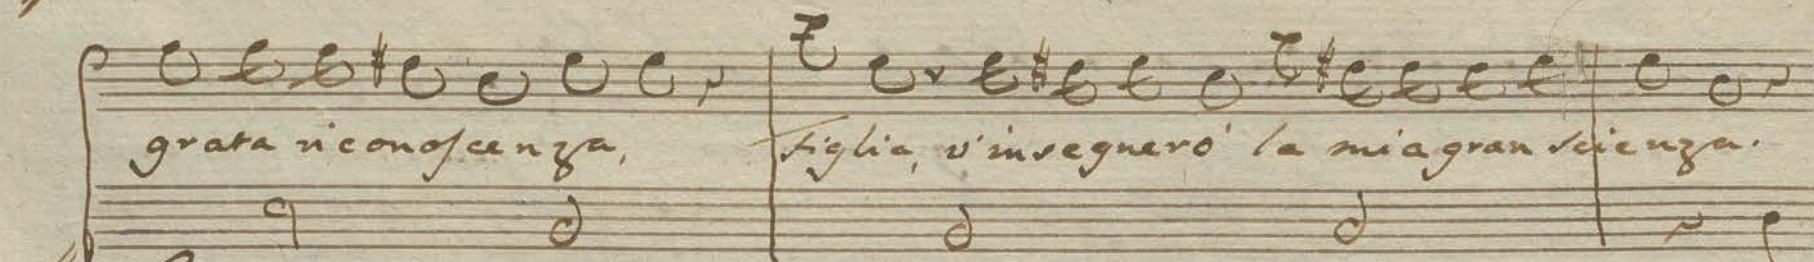 grata riconoscenza, figlia, v'insegnerò la mia gran scienza.